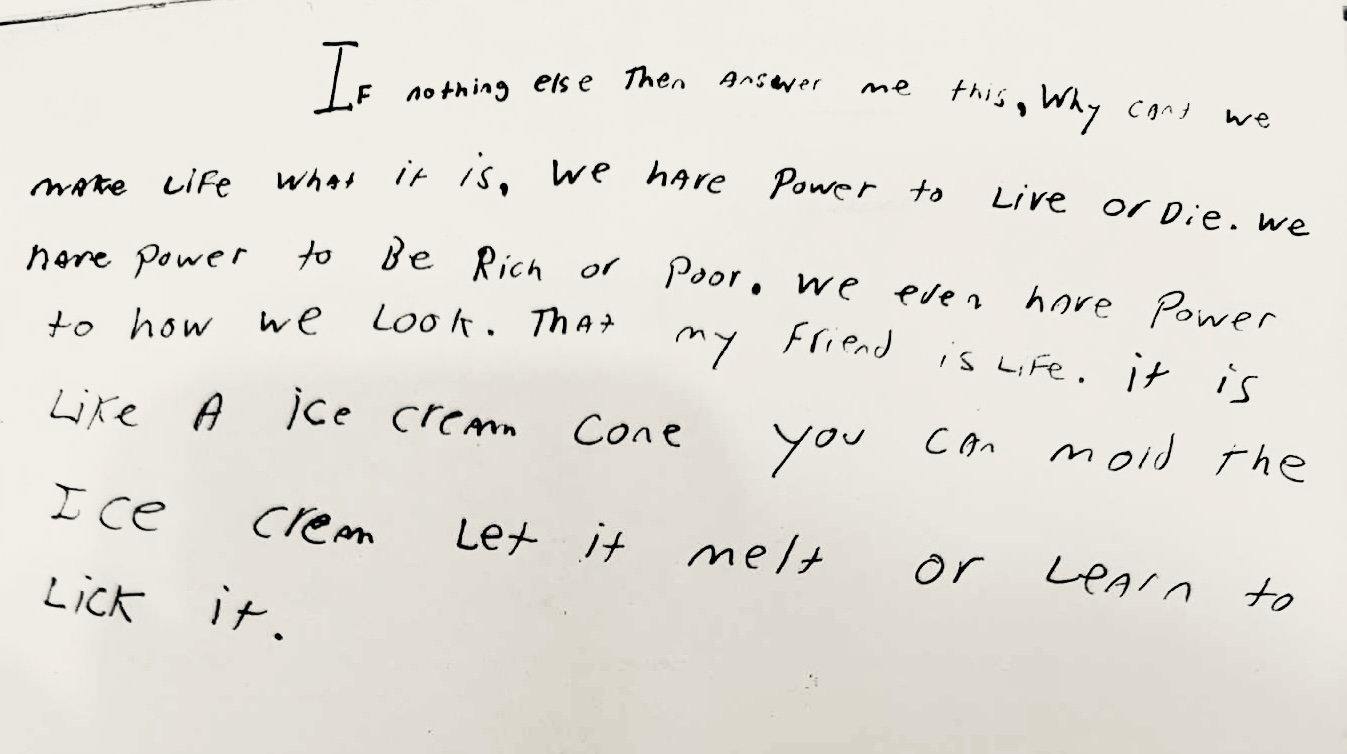 IF nothing else Then Answer me this, Why cant we
make LiFe what it is, we have Power to Live or Die. we
have power to Be Rich or Poor. we even have Power
to how we Look. That my Friend is LiFe. it is
Like A ice cream cone you can mold the
Ice cream Let it melt or Learn to
Lick it.